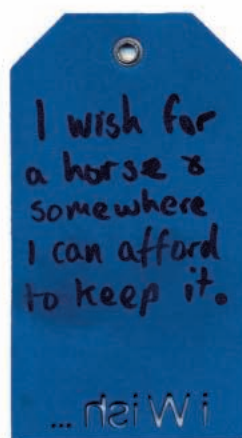 I wish for
a horse &
somewhere
I can afford
to keep it.
i Wish ...